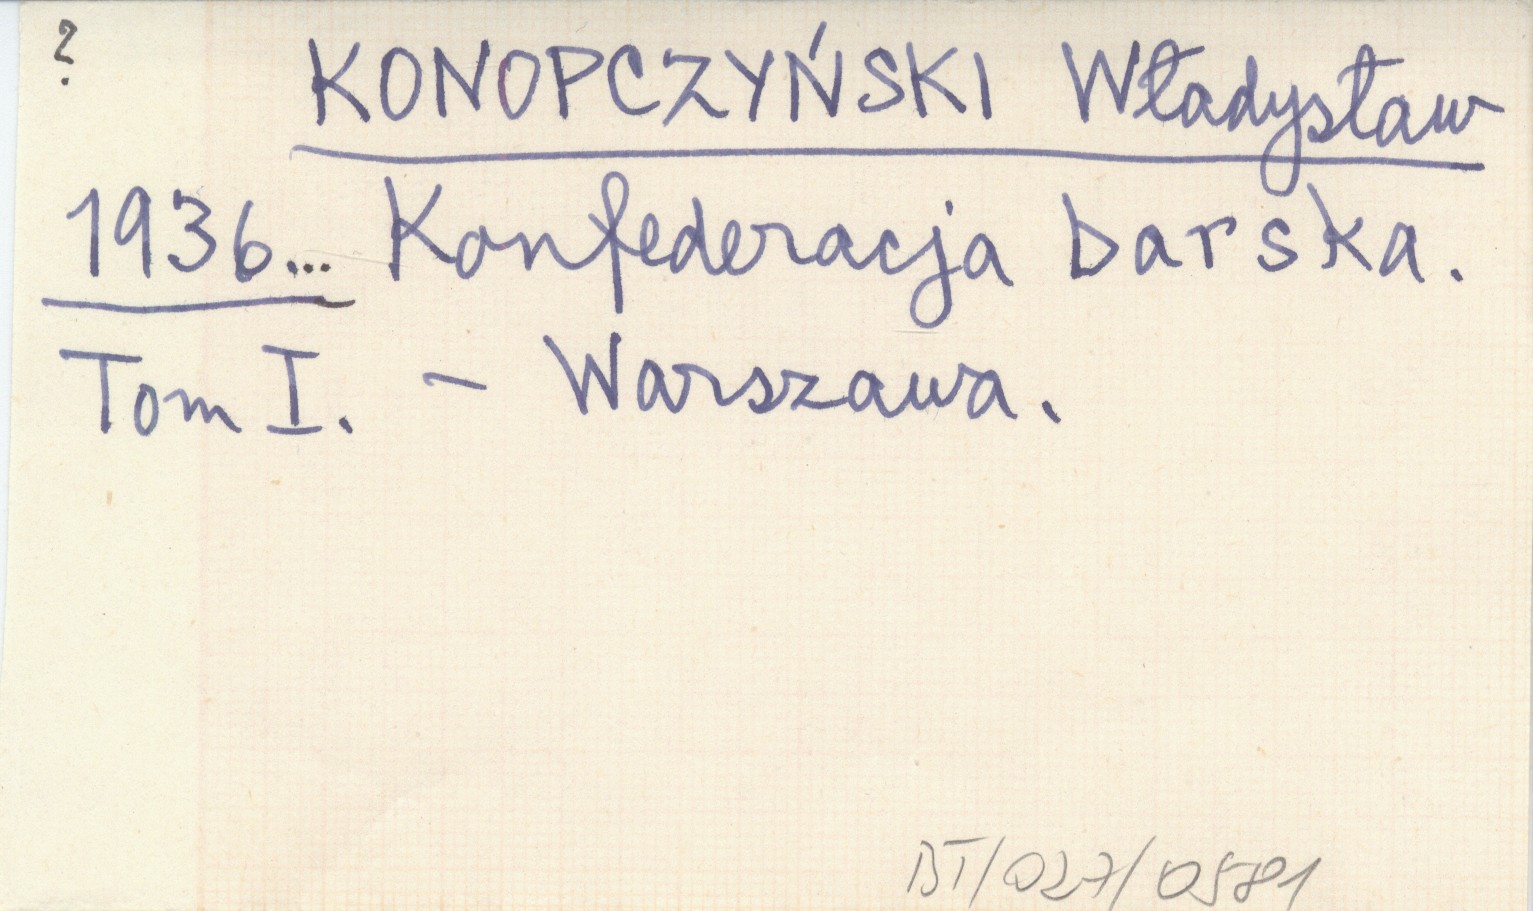 ?
KONOPCZYŃSKI Władysław
1936... Konfederacja barska.
Tom I. - Warszawa.
BT/027/0581